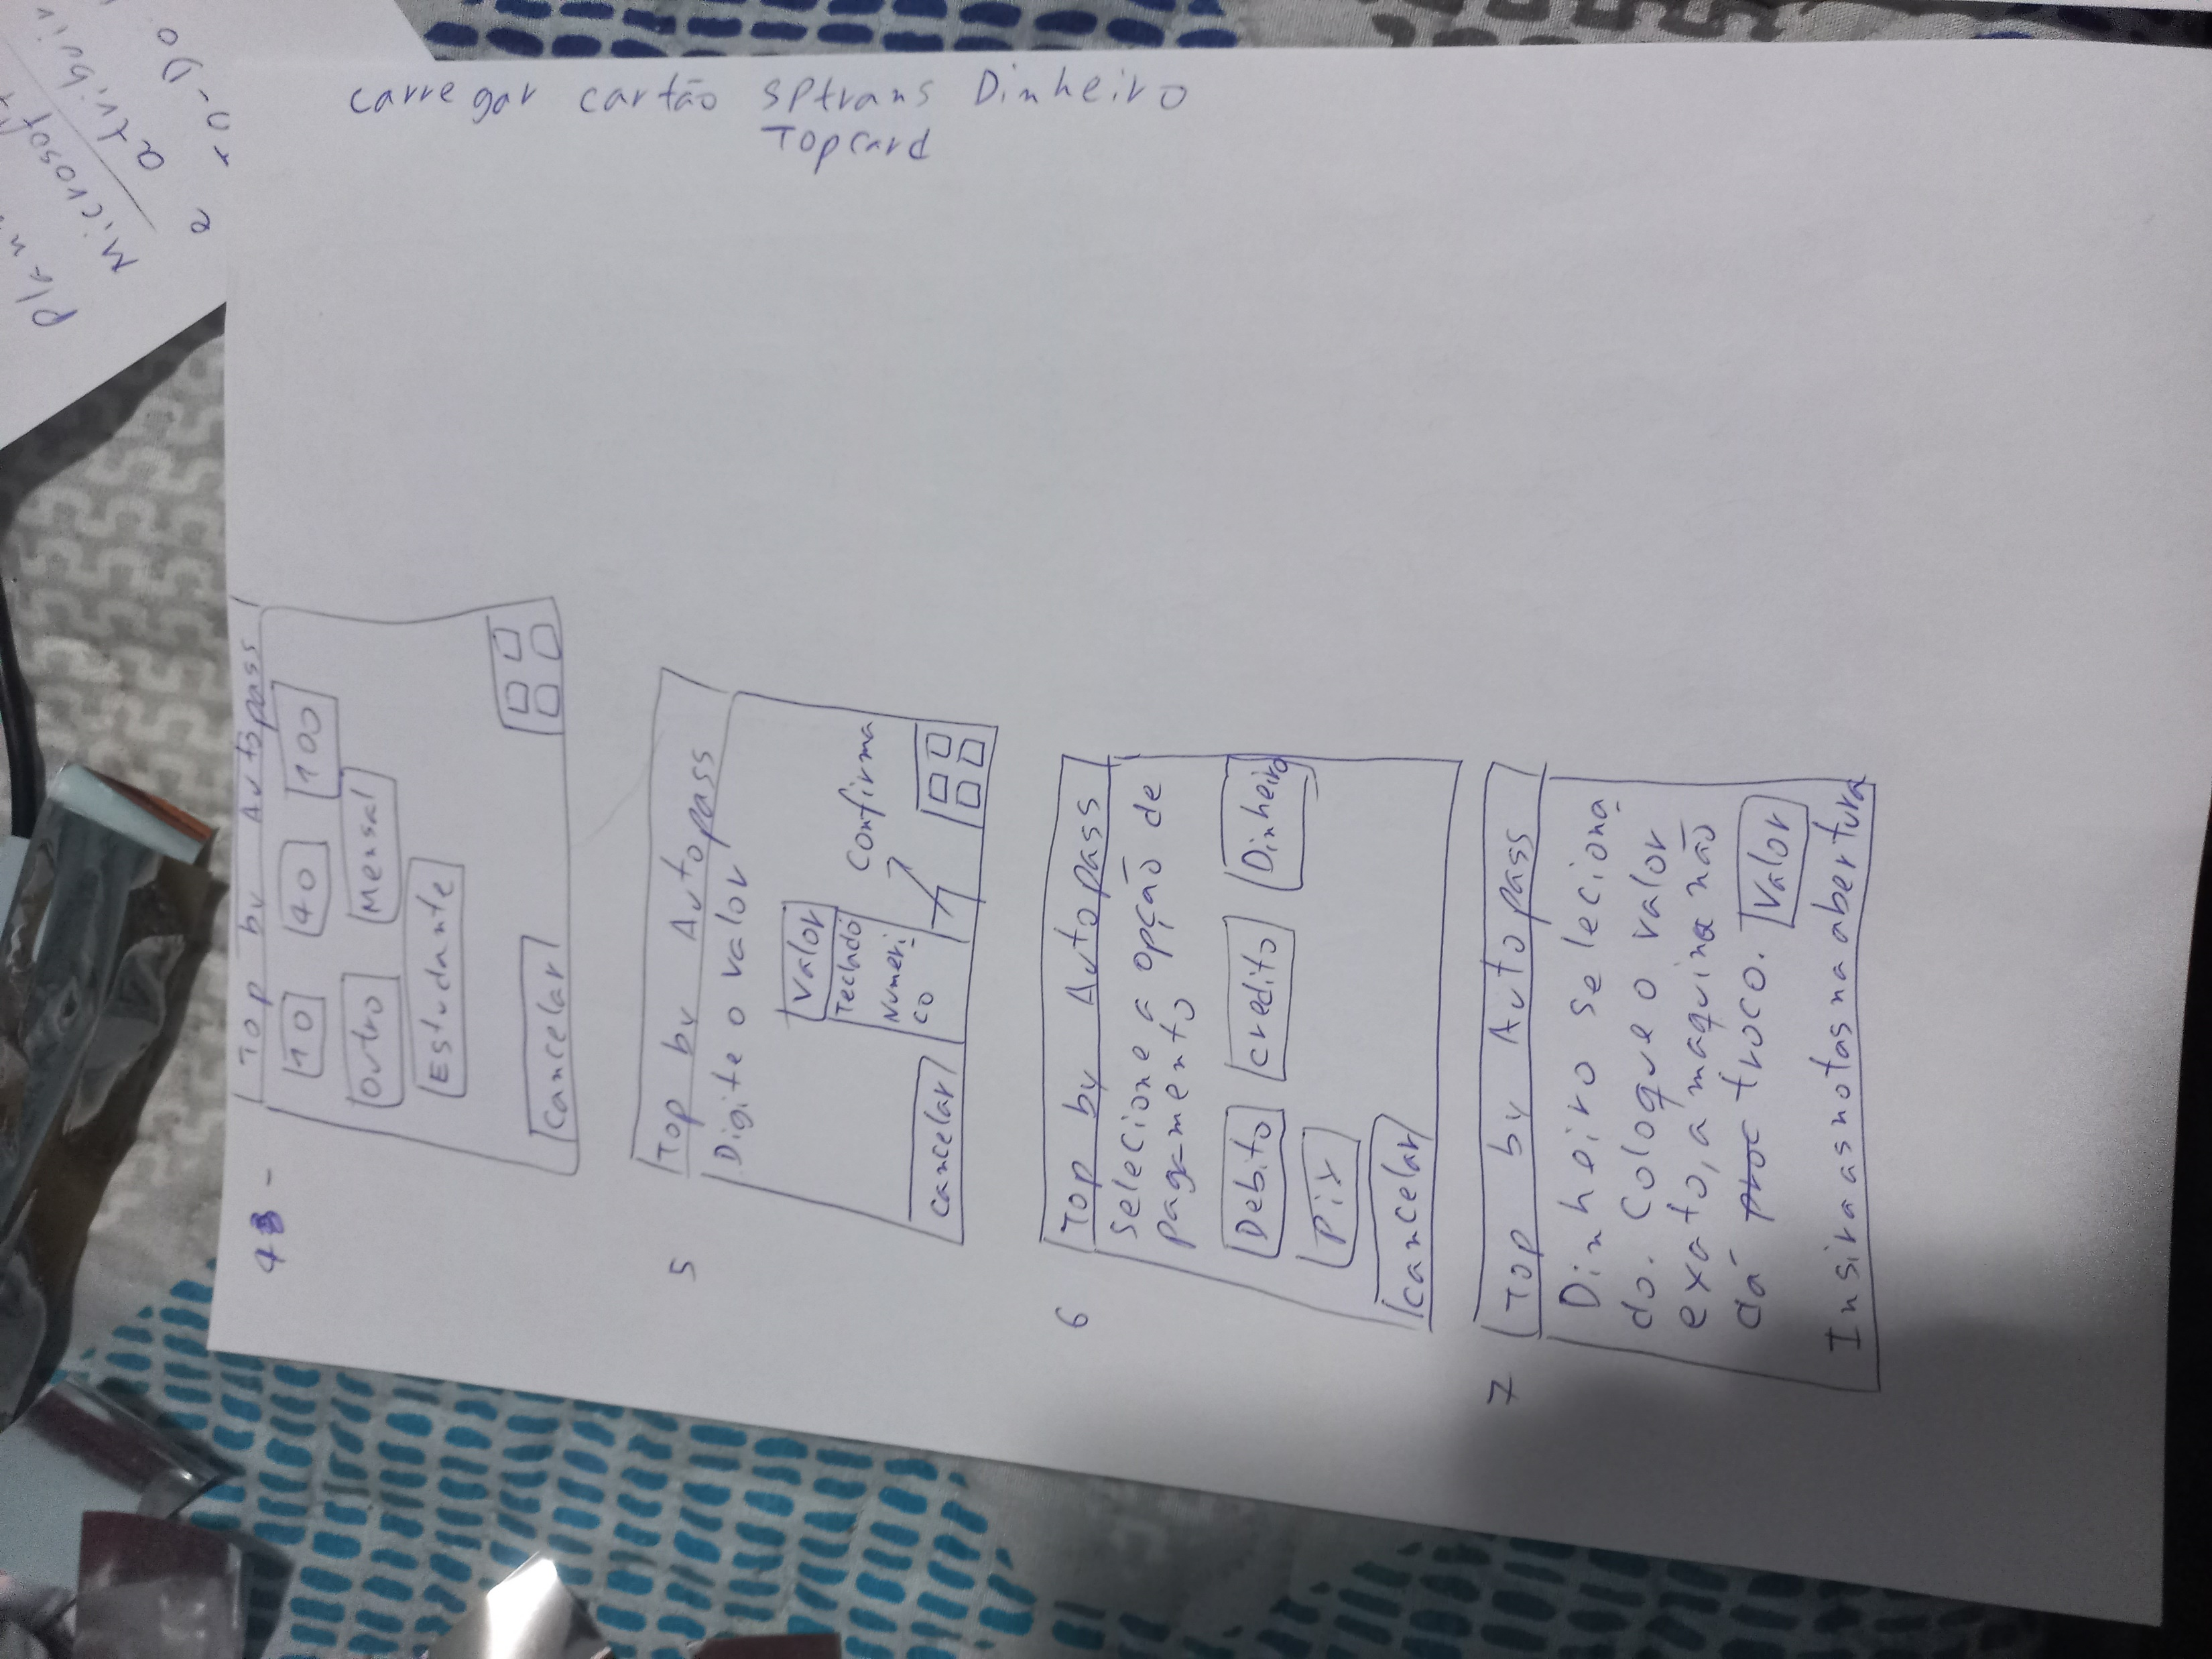 carregar cartão sptrans Dinheiro
Topcard
4 -
Top by Autopass
10 40 100
Outro Mensal
Estudante
Cancelar
5
Top by Autopass
Digite o valor
Valor
Teclado
Numeri
co
Confirma
Cancelar
6
Top by Autopass
Selecione a opção de
pagamento
Debito credito Dinheiro
Pix
Cancelar
7
Top by Autopass
Dinheiro seleciona
do. Coloque o valor
exato, a maquina não
dá troco. Valor
Insira as notas na abertura
Microsoft
atribuir